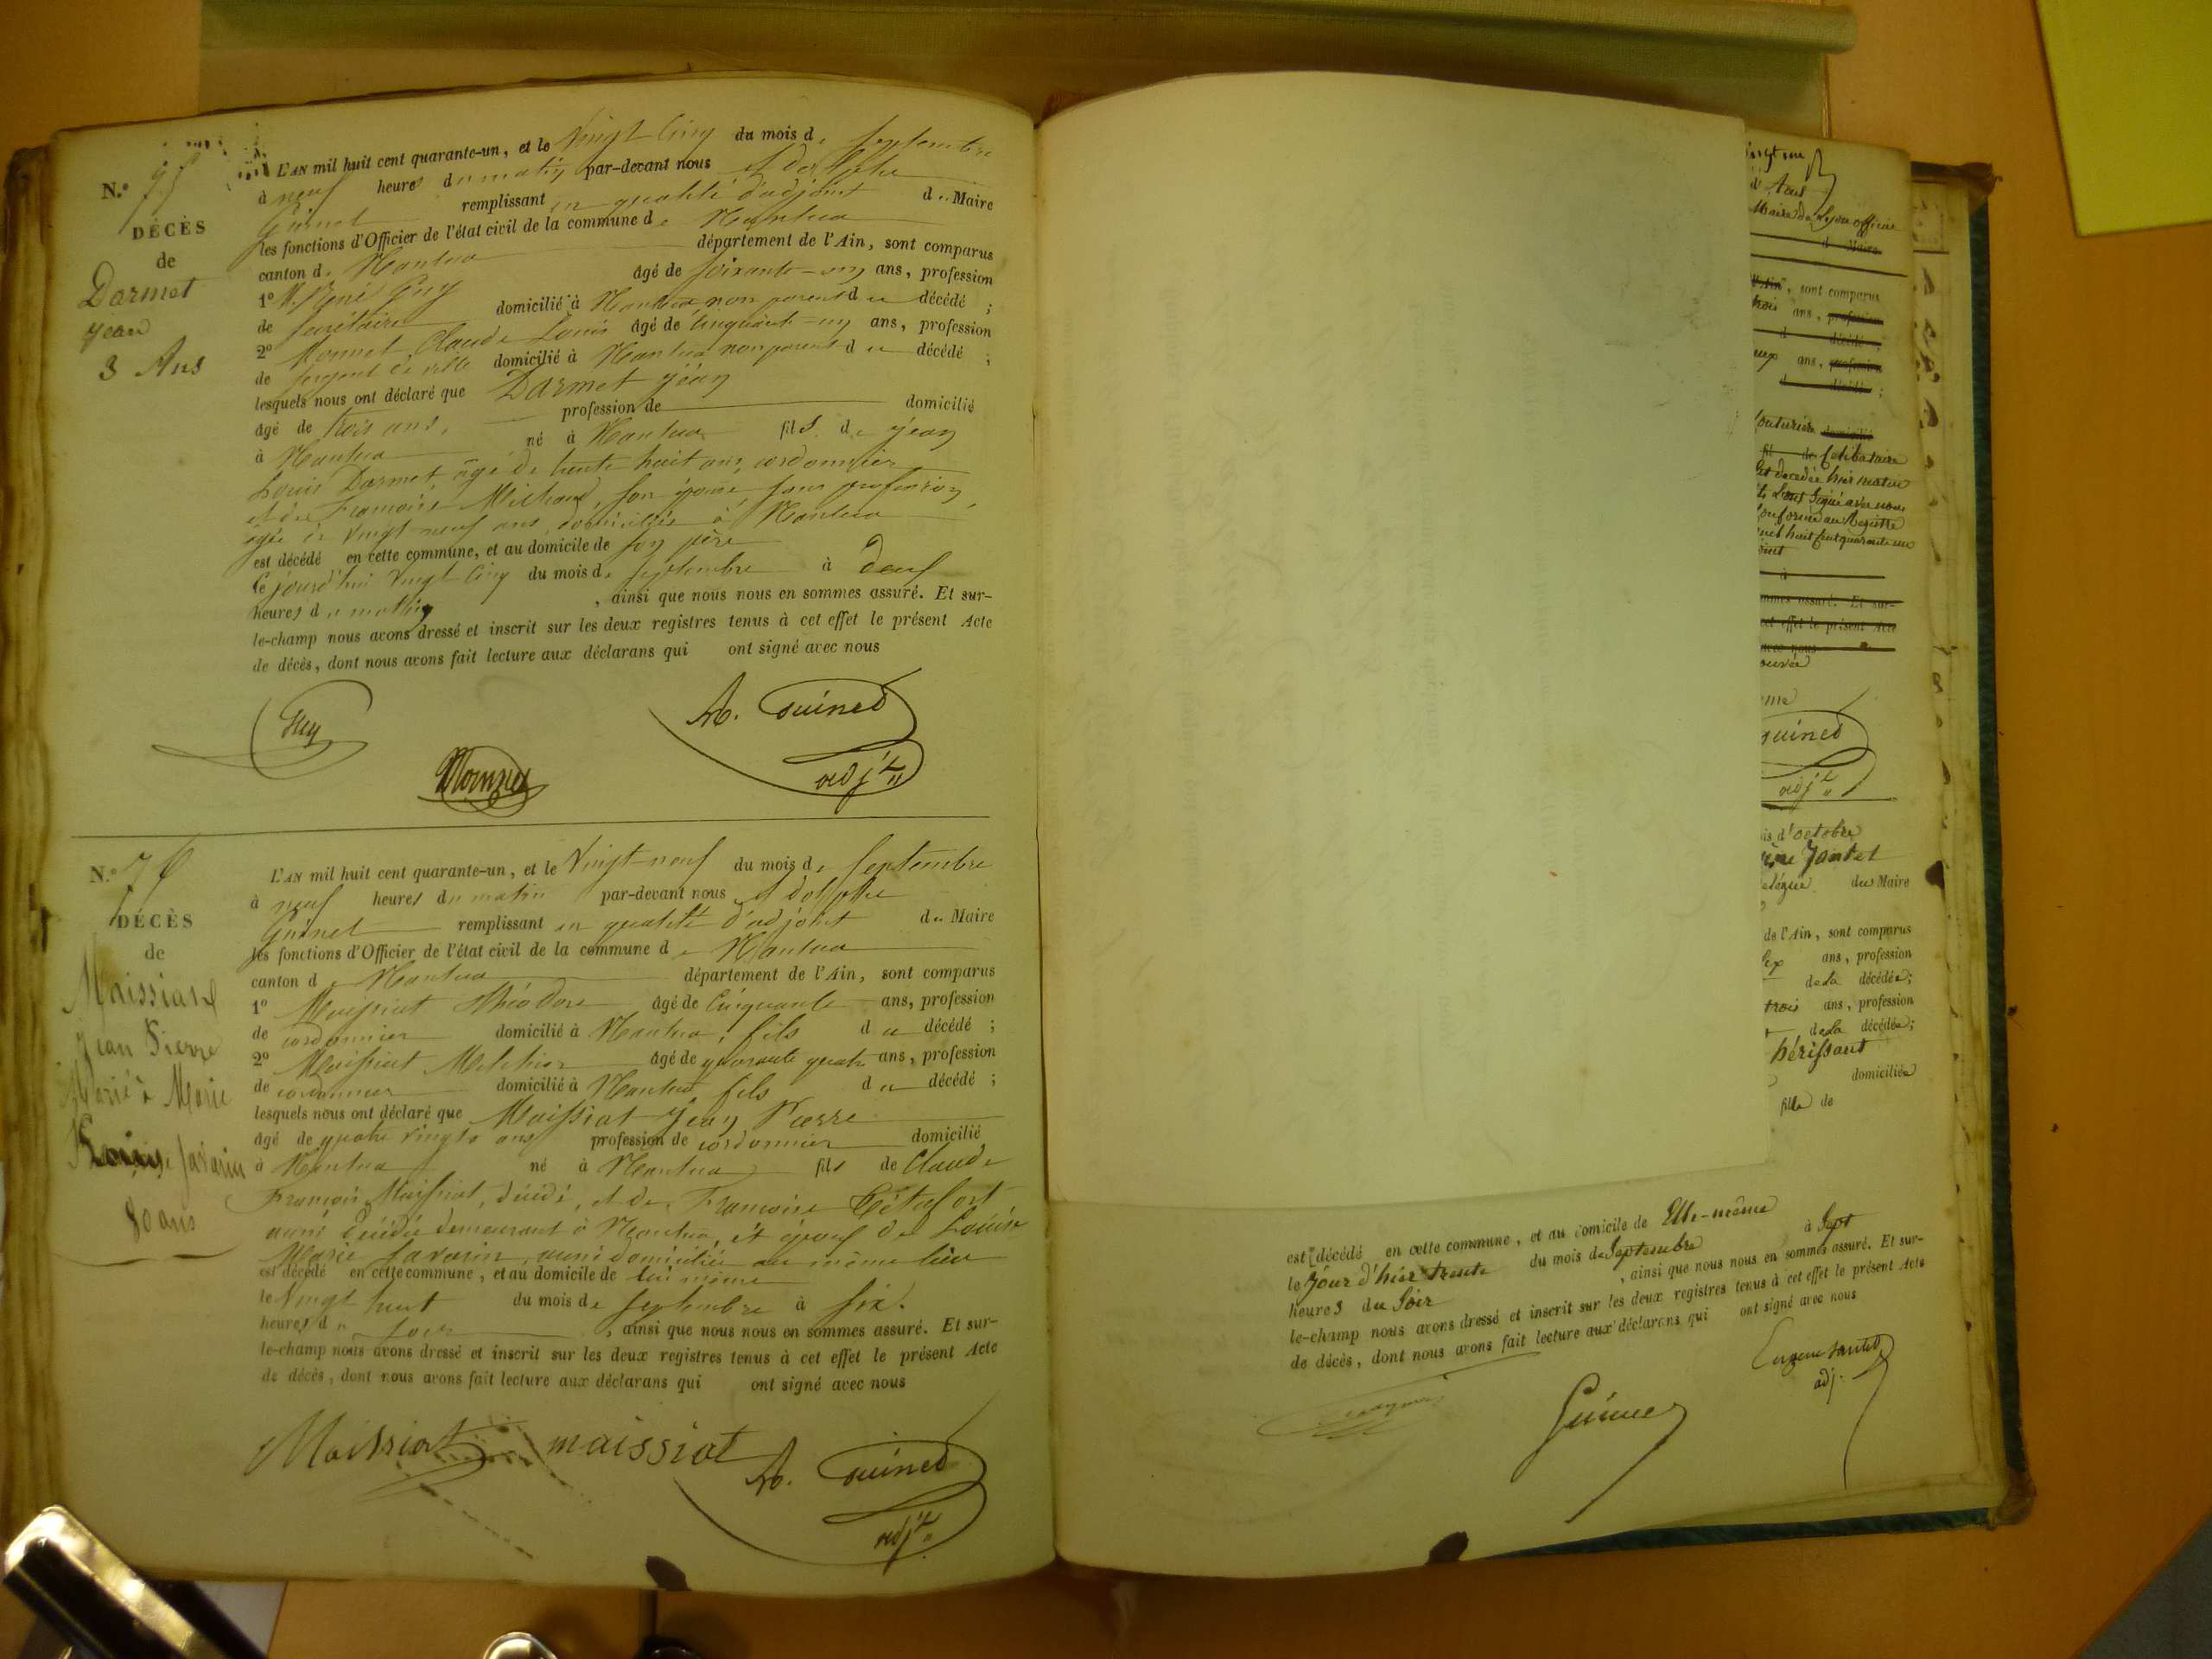 N.° 75
DÉCÈS
de
Darmet
Jean
3 Ans
L'AN mil huit cent quarante-un, et le Vingt Cinq du mois de Septembre
à neuf heures du matin par-devant nous Adolphe
Guinet remplissant en qualité d'adjoint du Maire
les fonctions d'Officier de l'état civil de la commune de Nantua
canton de Nantua département de l'Ain, sont comparus
1° M. René Guy âgé de soixante-un ans, profession
de secrétaire domicilié à Nantua non parent du décédé ;
2° Monnet Claude Louis âgé de cinquante-un ans, profession
de sergent de ville domicilié à Nantua non parent du décédé ;
lesquels nous ont déclaré que Darmet Jean
âgé de trois ans, profession de domicilié
à Nantua né à Nantua fils de Jean
Louis Darmet, âgé de trente huit ans, cordonnier
et de Françoise Michaud, son épouse, sans profession,
âgée de vingt neuf ans domiciliés à Nantua
est décédé en cette commune, et au domicile de son père
le jourd'hui vingt cinq du mois de septembre à deux
heures du matin, ainsi que nous nous en sommes assuré. Et sur-
le-champ nous avons dressé et inscrit sur les deux registres tenus à cet effet le présent Acte
de décès, dont nous avons fait lecture aux déclarans qui ont signé avec nous
Guy
Monnet
A. Guinet
adjt
N.° 76
DÉCÈS
de
Maissiat
Jean Pierre
Marié à Marie
Louise Savarin
80 ans
L'AN mil huit cent quarante-un, et le Vingt-neuf du mois de Septembre
à neuf heures du matin par-devant nous Adolphe
Guinet remplissant en qualité d'adjoint du Maire
les fonctions d'Officier de l'état civil de la commune de Nantua
canton de Nantua département de l'Ain, sont comparus
1° Maissiat Théodore âgé de Cinquante ans, profession
de cordonnier domicilié à Nantua, fils du décédé ;
2° Maissiat Melchior âgé de quarante quatre ans, profession
de cordonnier domicilié à Nantua fils du décédé ;
lesquels nous ont déclaré que Maissiat Jean Pierre
âgé de quatre vingts ans profession de cordonnier domicilié
à Nantua né à Nantua fils de Claude
François Maissiat, décédé, et de Françoise
aussi décédée demeurant à Nantua, et époux de Louise
Marie Savarin aussi domiciliée au même lieu
est décédé en cette commune, et au domicile de lui même
le Vingt huit du mois de septembre à six
heures du soir, ainsi que nous nous en sommes assuré. Et sur-
le-champ nous avons dressé et inscrit sur les deux registres tenus à cet effet le présent Acte
de décès, dont nous avons fait lecture aux déclarans qui ont signé avec nous
Maissiat maissiat
A. Guinet
adjt
Maire de Lyon officier
d Maire
l'Ain, sont comparus
ans, profession
d décédé ;
ans, profession
d décédé ;
domicilié
fil de Célibataire
est décédée hier matin
Conforme au Registre
mil huit Cent quarante un
à
sommes assuré. Et sur-
cet effet le présent Acte
avec nous
guinet
adjt
d'octobre
Jantet
délégué du Maire
de l'Ain, sont comparus
ans, profession
de la décédée ;
trois ans, profession
de la décédée ;
hérissant
domiciliée
fille de
est décédé en cette commune, et au domicile de Elle-même
le jour d'hier trente du mois de Septembre à Sept
heures du Soir, ainsi que nous nous en sommes assuré. Et sur-
le-champ nous avons dressé et inscrit sur les deux registres tenus à cet effet le présent Acte
de décès, dont nous avons fait lecture aux déclarans qui ont signé avec nous
Eugene Jantet
adj.